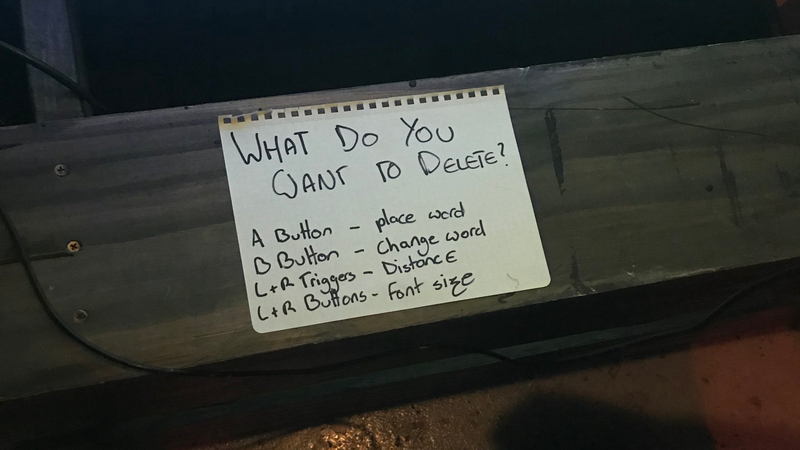 WHAT DO YOU
WANT TO DELETE?
A Button - place word
B Button - Change word
L+R Triggers - DistancE
L+R Buttons - Font size